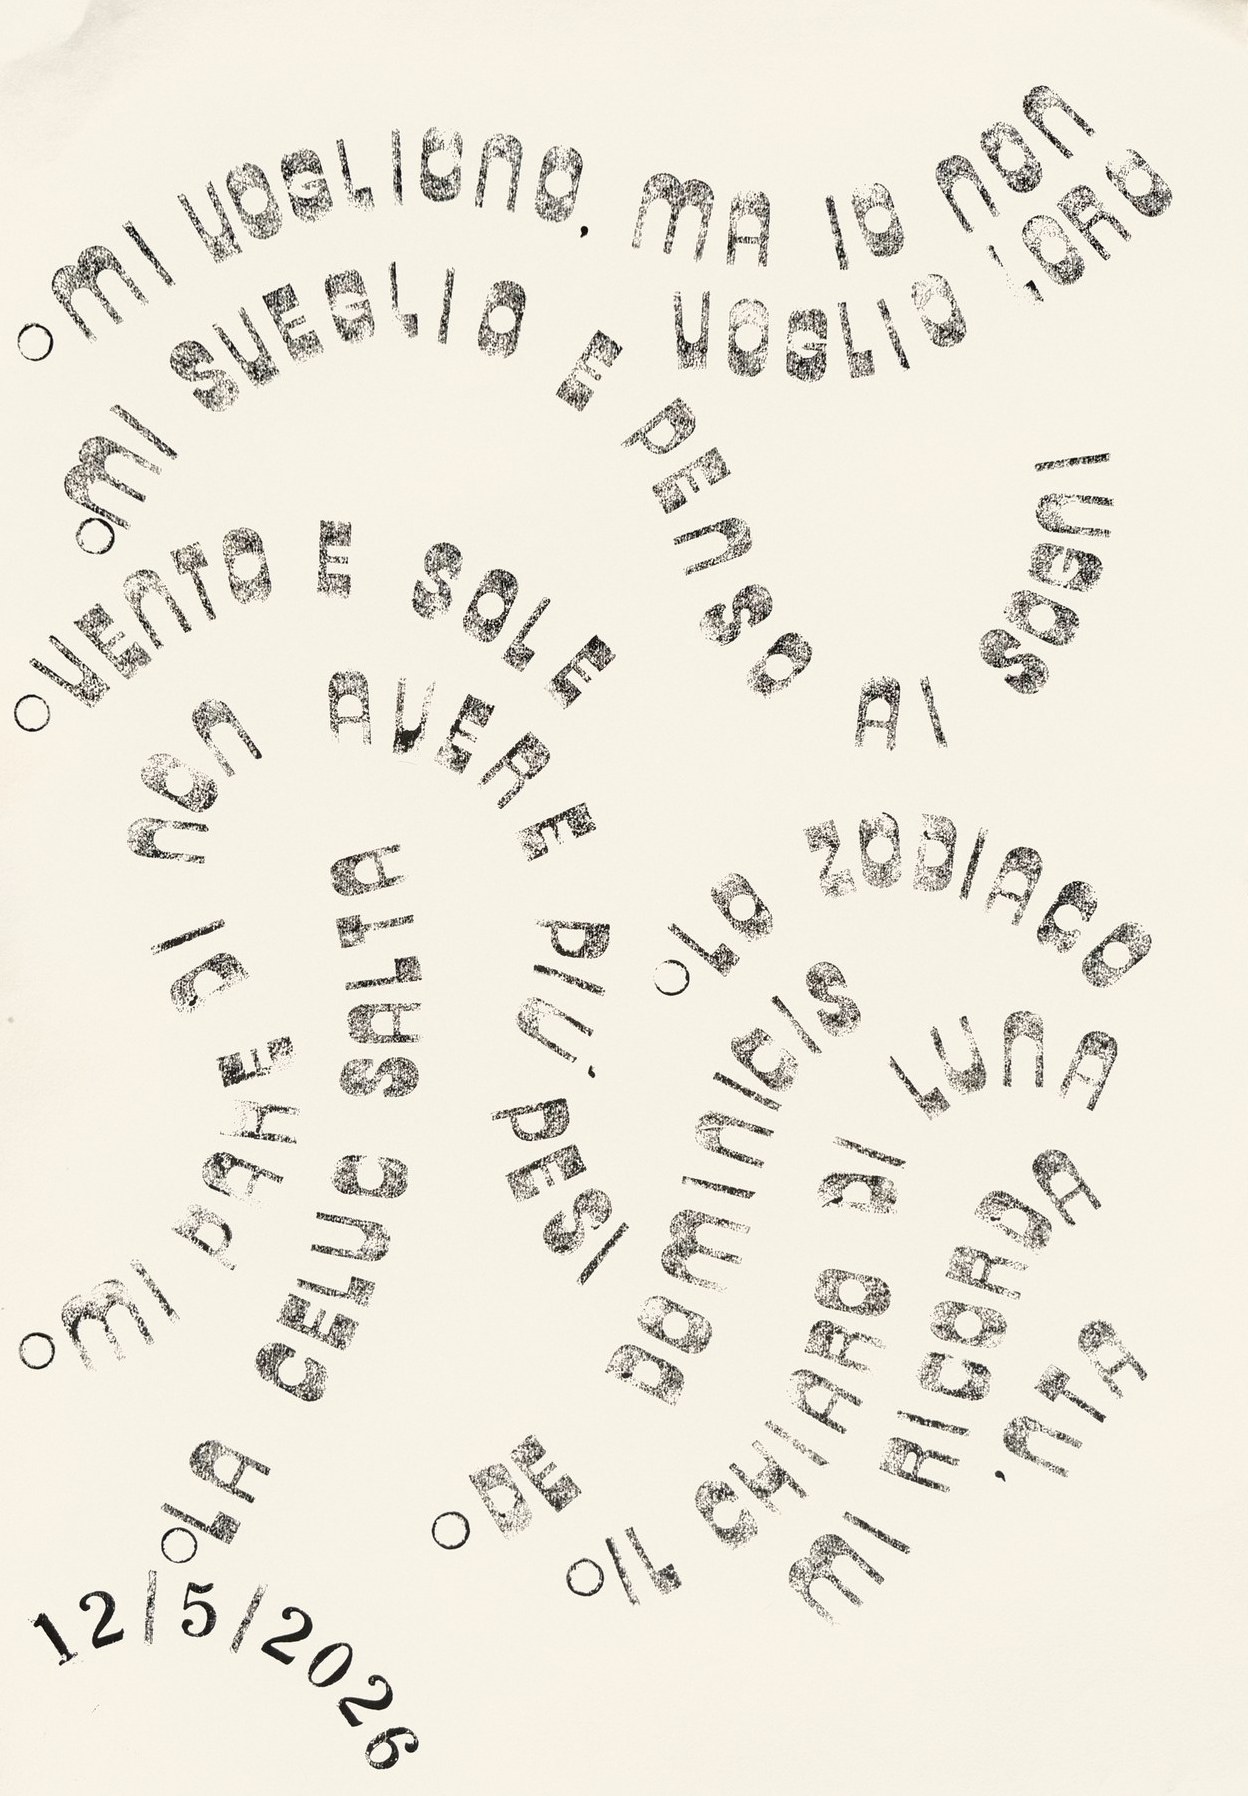 MI VOGLIONO, MA IO NON
VOGLIO LORO
MI SVEGLIO E PENSO AI SOGNI
VENTO E SOLE
MI PARE DI NON AVERE PIU' PESI
LA CELUC SALTA
LO ZODIACO
DE DOMINICIS
IL CHIARO DI LUNA
MI RICORDA
'NTA
12/5/2026